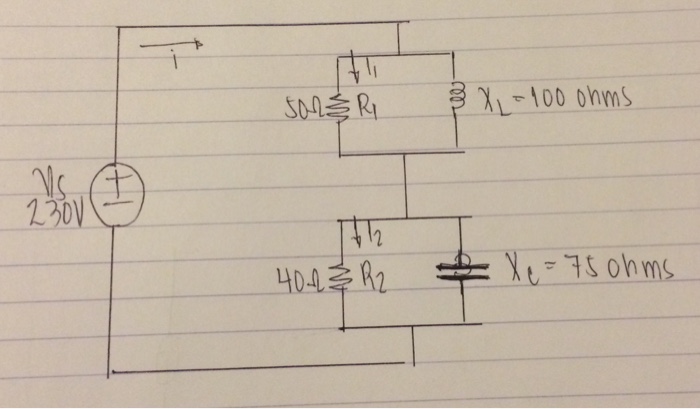 i
I1
50Ω
R1
XL = 100 ohms
Vs
230V
+
−
I2
40Ω
R2
Xc = 75 ohms